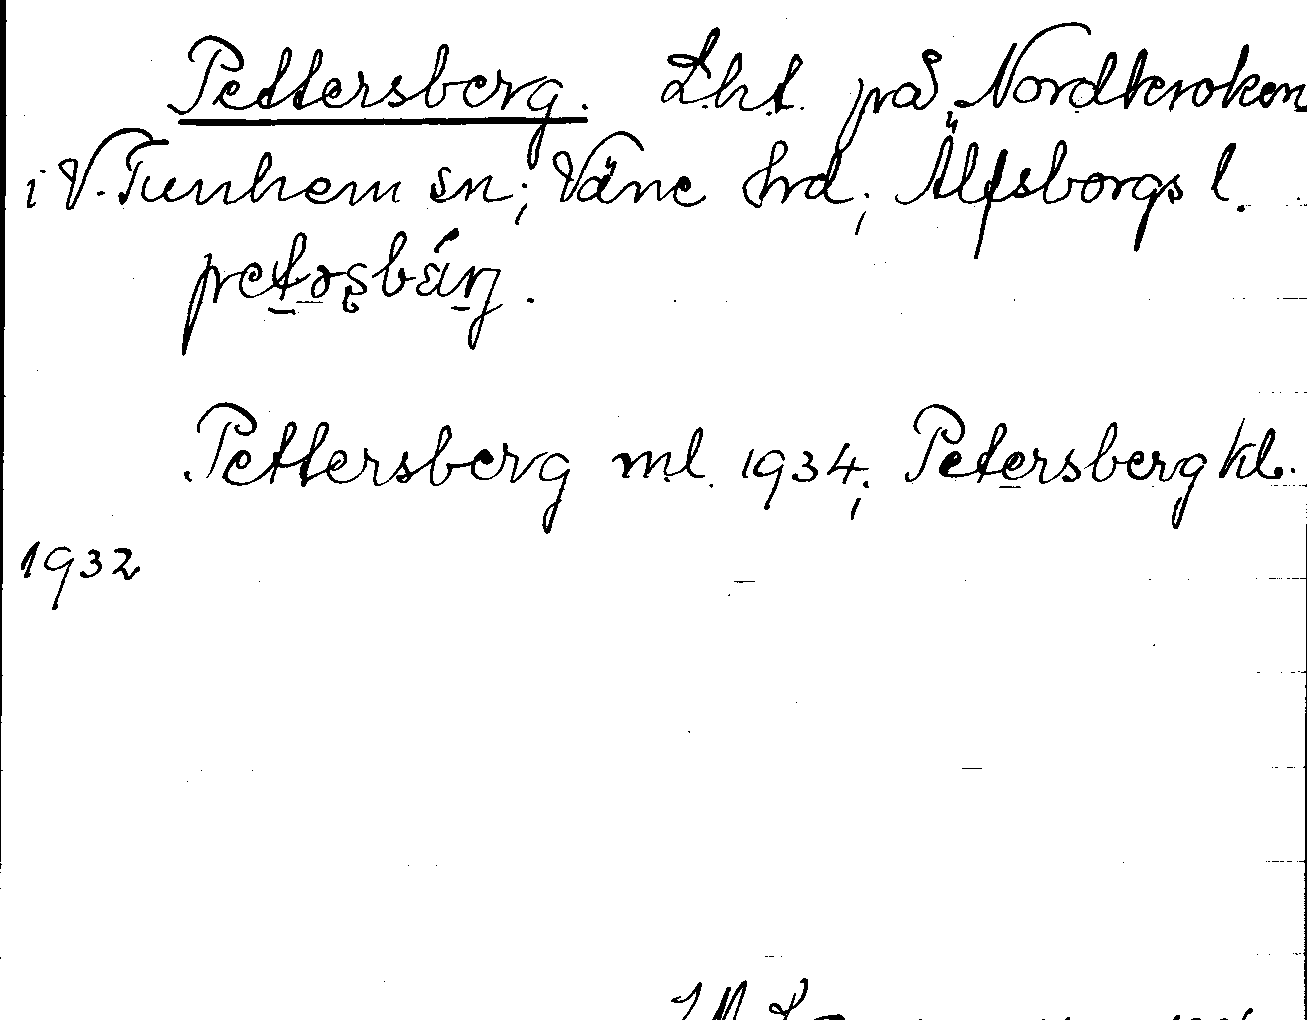 Pettersberg. Lht. på Nordkroken
i V. Tunhem sn; Väne hrd; Älfsborgs l.
Pettersberg ml. 1934; Petersberg kl.
1932